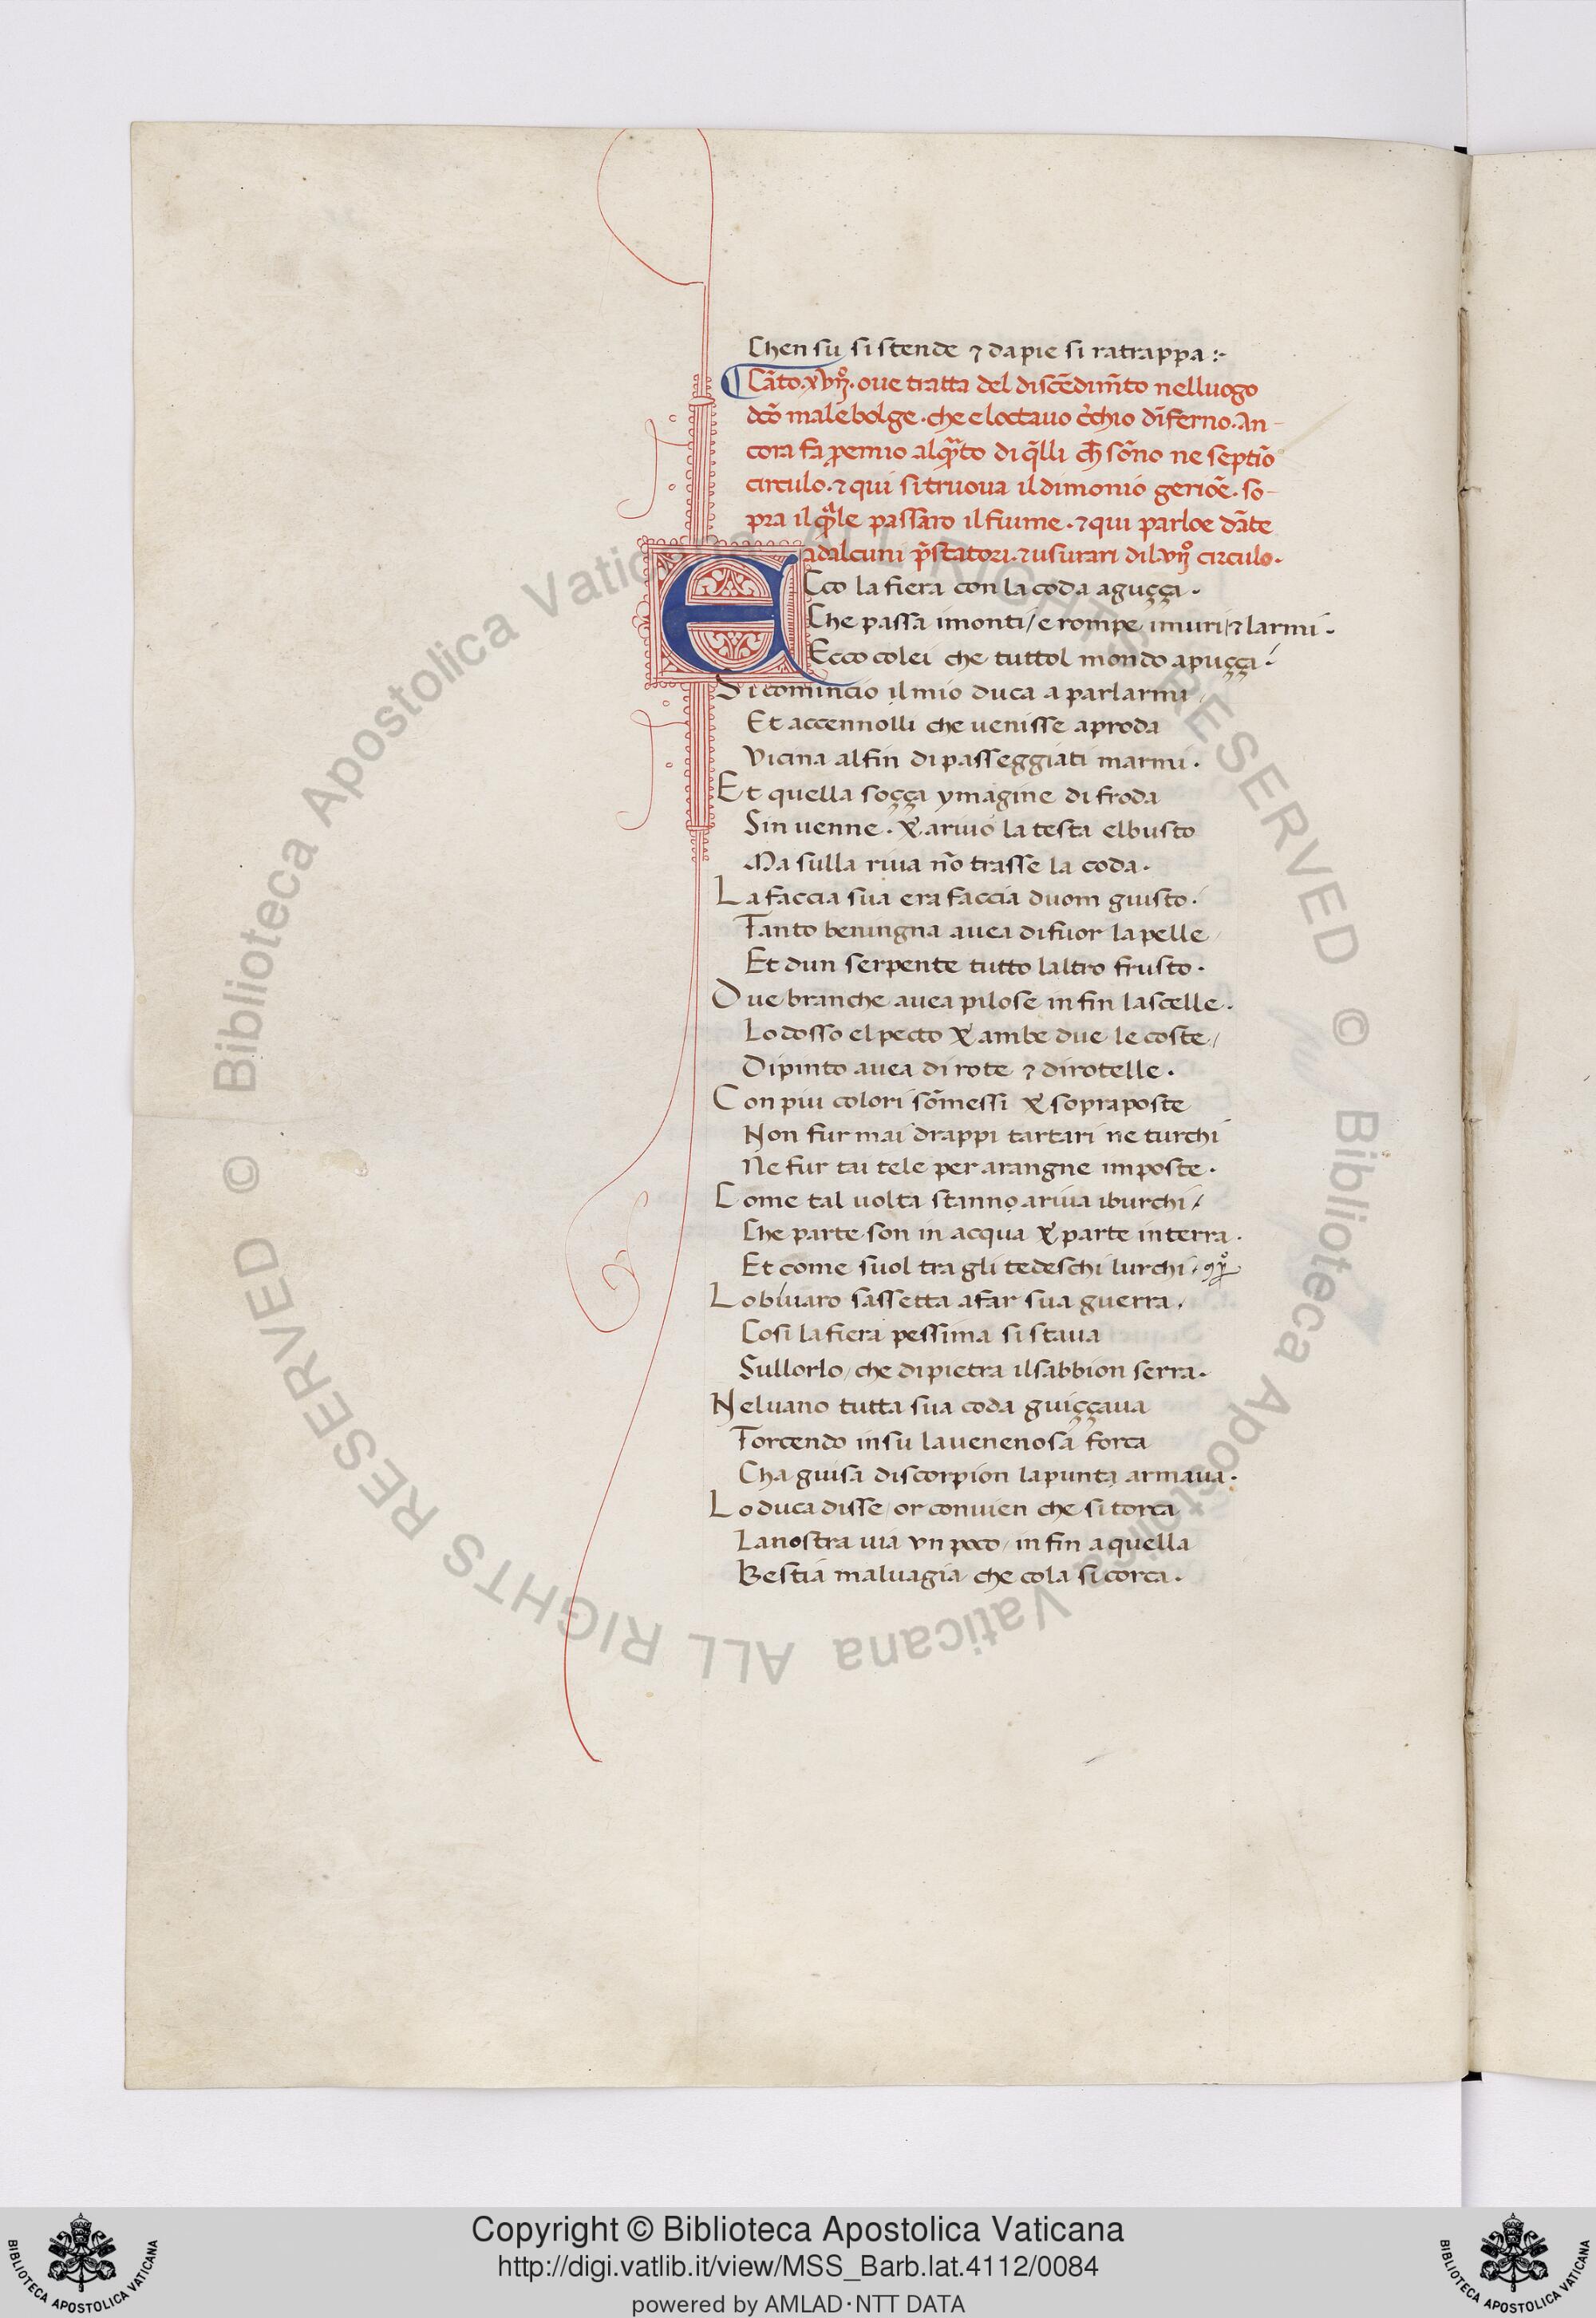 Chen su si stende ⁊ da pie si ratrappa :-
Cãto. xvijº. oue tratta del discẽdimẽto nelluogo
dc̃o malebolge. che e loctauo c̃chio dĩferno. An-
cora fa ꝓemio alqᵃ̃to di q̃lli cħ sõno ne septĩo
circulo. ⁊ qui si truoua il dimonio geriõe. so-
pra il qᵃle passaro il fiume. ⁊ qui parloe dãte
ad alcuni p̃statori. ⁊ usurari dil. vijº circulo.
ECco la fiera con la coda aguçça.
Che passa imonti / e rompe imuri / ⁊ larmi.
Ecco colei che tuttol mondo apuçça.
Si comincio il mio duca a parlarmi /
Et accennolli che uenisse aproda
Vicina alfin di passeggiati marmi.
Et quella soçça ymagine di froda
Sin uenne. & ariuo la testa elbusto
Ma sulla riua nõ trasse la coda.
La faccia sua era faccia duom giusto.
Tanto beningna auea di fuor la pelle /
Et dun serpente tutto laltro frusto.
Due branche auea pilose in fin lascelle.
Lo dosso el pecto & ambe due le coste /
Dipinto auea di rote ⁊ di rotelle.
Con piu colori sõmessi & sopraposte
Non fur mai drappi tartari ne turchi
Ne fur tai tele per arangne imposte.
Come tal uolta stanno a riua iburchi /
Che parte son in acqua & parte in terra.
Et come suol tra gli tedeschi lurchi.
Lo biuaro sassetta a far sua guerra.
Cosi la fiera pessima si staua
Sullorlo / che di pietra il sabbion serra.
Nel uano tutta sua coda guiççaua
Torcendo in su la uenenosa forca
Cha guisa di scorpion la punta armaua.
Lo duca disse / or conuien che si torca
La nostra uia vn poco / in fin a quella
Bestia maluagia / che cola si corca.
© Biblioteca Apostolica Vaticana ALL RIGHTS RESERVED © Biblioteca Apostolica Vaticana ALL RIGHTS RESERVED
Copyright © Biblioteca Apostolica Vaticana
http://digi.vatlib.it/view/MSS_Barb.lat.4112/0084
powered by AMLAD·NTT DATA
BIBLIOTECA APOSTOLICA VATICANA
BIBLIOTECA APOSTOLICA VATICANA